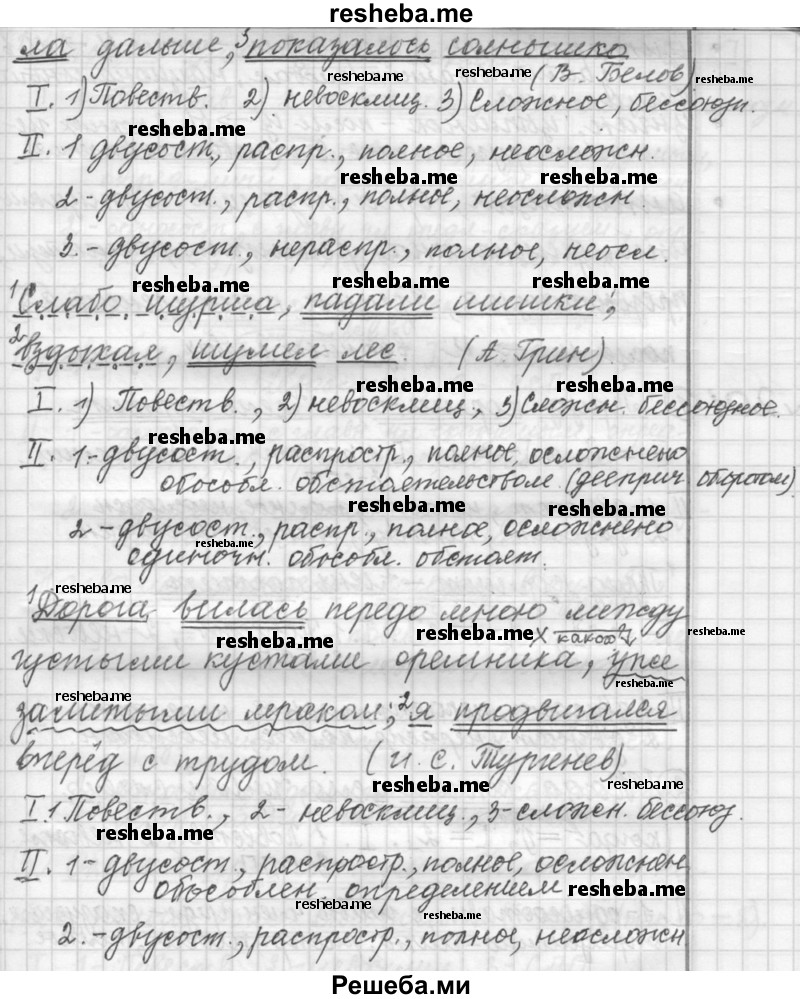 resheba.me
ла дальше, ³показалось солнышко
resheba.me resheba.me (В. Белов) resheba.me
I. 1) Повеств. 2) невосклиц. 3) Сложное, бессоюзн.
resheba.me
II. 1 двусост., распр., полное, неосложн.
resheba.me resheba.me
2 - двусост., распр., полное, неосложн.
3. - двусост., нераспр., полное, неосл.
resheba.me resheba.me resheba.me
¹Слабо шурша, падали шишки,
²вздыхая, шумел лес. (А. Грин)
resheba.me resheba.me
I. 1) Повеств., 2) невосклиц., 3) Сложн. бессоюзное.
resheba.me
II. 1.- двусост., распростр., полное, осложнено
обособл. обстоятельством (дееприч. оборотом)
resheba.me resheba.me
2 - двусост., распр., полное, осложнено
resheba.me
одиночн. обособл. обстоят.
resheba.me
¹Дорога вилась передо мною между
resheba.me resheba.me х какого? resheba.me
густыми кустами орешника, уже
resheba.me resheba.me
заметыми мраком; ²я продвигался
вперёд с трудом. (И. С. Тургенев).
resheba.me resheba.me
I. 1 Повеств., 2 - невосклиц., 3 - сложн. бессоюз.
resheba.me
II. 1 - двусост., распростр., полное, осложнен.
обособлен. определением resheba.me
resheba.me resheba.me
2. - двусост., распростр., полное, неосложн.
Решеба.ми